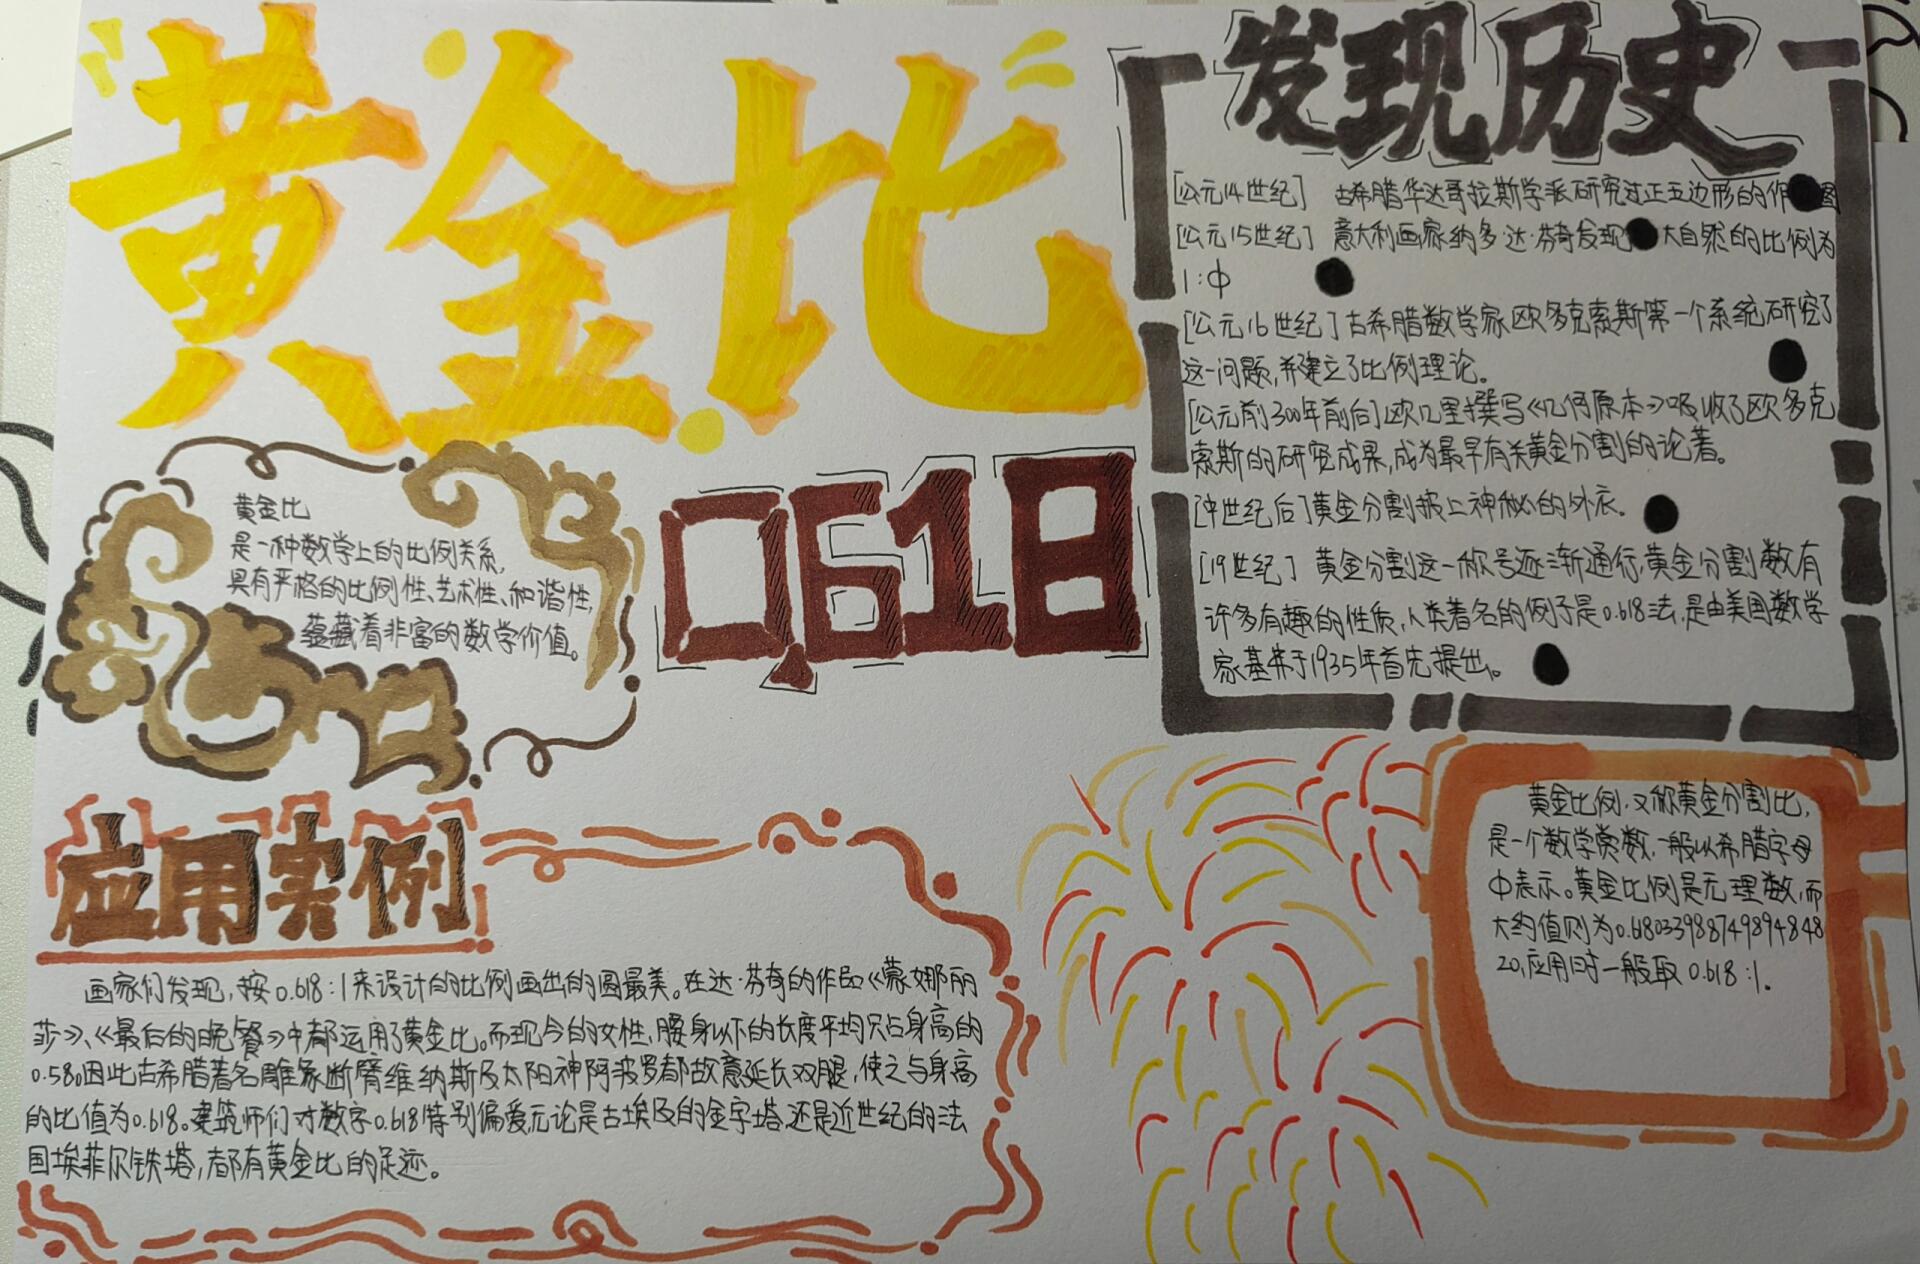 黄金比
发现历史
[公元14世纪] 古希腊华达哥拉斯学派研究过正五边形的作图
[公元15世纪] 意大利画家纳多·达·芬奇发现大自然的比例为
1:中
[公元16世纪]古希腊数学家欧多克索斯第一个系统研究了
这一问题,并建立了比例理论。
[公元前300年前后]欧几里撰写《几何原本》吸收了欧多克
索斯的研究成果,成为最早有关黄金分割的论著。
[中世纪后]黄金分割披上神秘的外衣。
[19世纪] 黄金分割这一称号逐渐通行,黄金分割数有
许多有趣的性质,人类著名的例子是0.618法,是由美国数学
家基弗于1935年首先提出。
黄金比
是一种数学上的比例关系,
具有严格的比例性、艺术性、和谐性,
蕴藏着非富的数学价值。
0.618
应用实例
画家们发现,按0.618:1来设计的比例画出的圆最美。在达·芬奇的作品《蒙娜丽
莎》、《最后的晚餐》中都运用了黄金比。而现今的女性,腰身以下的长度平均只占身高的
0.58。因此古希腊著名雕象断臂维纳斯及太阳神阿波罗都故意延长双腿,使之与身高
的比值为0.618。建筑师们对数字0.618特别偏爱,无论是古埃及的金字塔,还是近世纪的法
国埃菲尔铁塔,都有黄金比的足迹。
黄金比例,又称黄金分割比,
是一个数学赏数,一般以希腊字母
中表示。黄金比例是无理数,而
大约值则为0.618033988749894848
20,应用时一般取0.618:1。